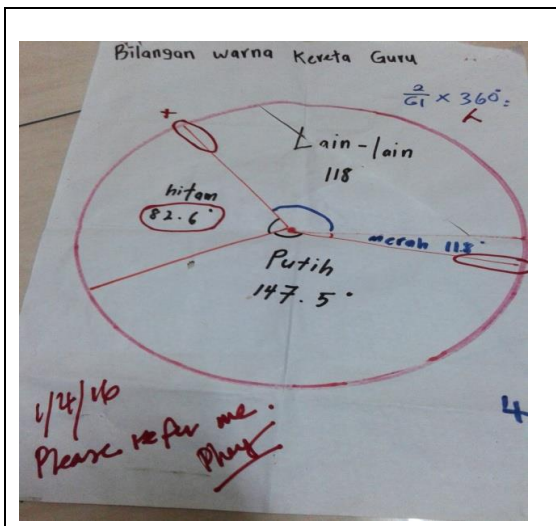 Bilangan warna Kereta Guru
2/61 × 360° =
Lain-lain
118
hitam
82.6°
merah 11.8°
Putih
147.5°
1/4/16
Please refer me.
4